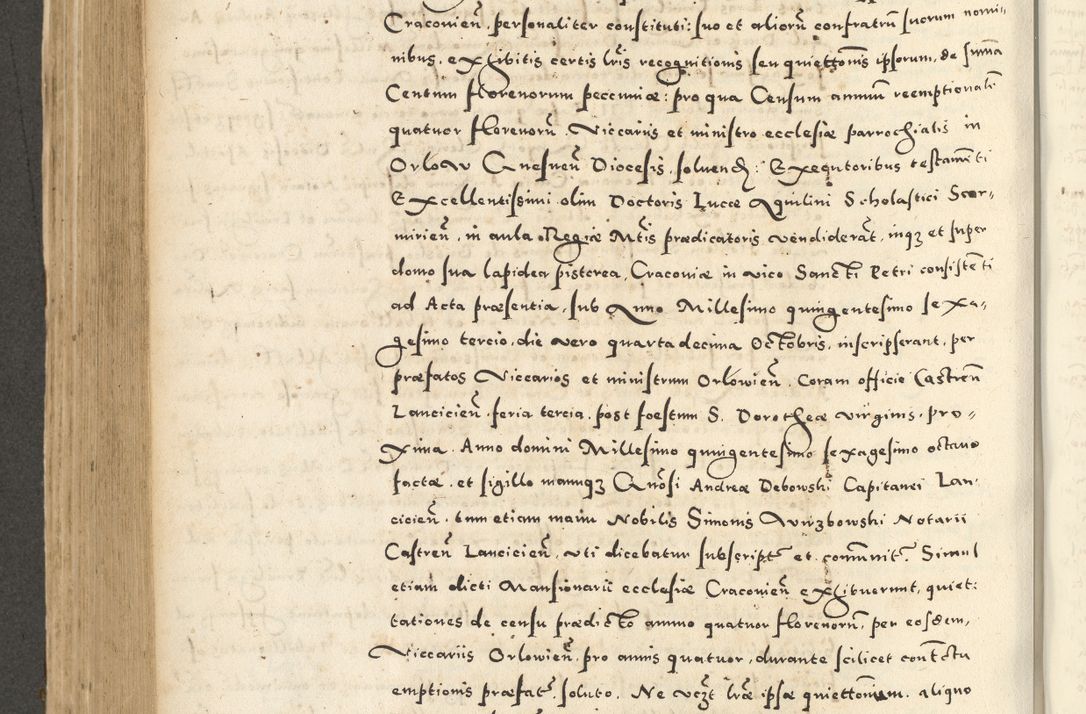 Cracovien̄, personaliter constituti: suo et aliorū confratrū suorum nomi-
nibus, exhibitis certis lr̄is recognitionis seu quiettōnis ipsorum, de sum̄a
Centum florenorum peccuniæ: pro qua Censum annuū reemptionalē
quatuor florenorū, Viccariis et ministro ecclesiæ parrochialis in
Orlow Gnesnen̄ Diocesis, soluend: Exequtoribus testamēti
Excellentissimi olim Doctoris Luccæ Aquilini Scholastici Scar-
mirien̄, in aula Regiæ Mt̄is prædicatoris vendiderāt, inq3 et super
domo sua lapidea pistorea, Cracoviæ in vico Sancti Petri consistēti
ad Acta præsentia, sub Anno Millesimo quingentesimo sexa-
gesimo tercio, die vero quarta decima Octobris, inscripserant, per
præfatos Viccarios et ministrum Orlowien̄. Coram officio Castren̄
Lancicien̄, feria tercia, post foestum S. Dorotheæ virginis, pro-
xima. Anno domini Millesimo quingentesimo sexagesimo octavo
factæ, et sigillo manuq3 Gn̄osi Andreæ Debowski Capitanei Lan-
cicien̄, tum etiam manu Nobilis Simonis Wirzbowski Notarii
Castren̄ Lancicien̄, uti dicebatur subscript et communit. Simul
etiam dicti Mansionarii ecclesiæ Cracovien̄ exhibuerunt, quiet-
tationes de censu prædicto annuo quatuor florenorū, per eosdem,
Viccariis Orlowien̄, pro annis quatuor, durante scilicet contctu
emptionis præfat, soluto. Ne lr̄æ ipsæ quiettōnum, aliquo